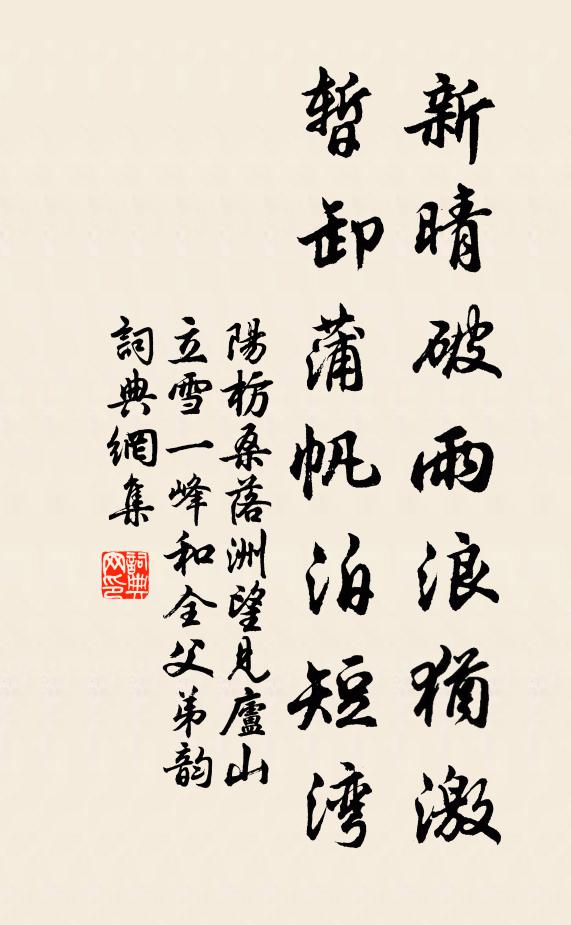 新晴破雨浪猶激
暫卸蒲帆泊短湾
陽枋桑落洲望見廬山
立雪一峰和全父弟韵
詞典網集
詞典
网印